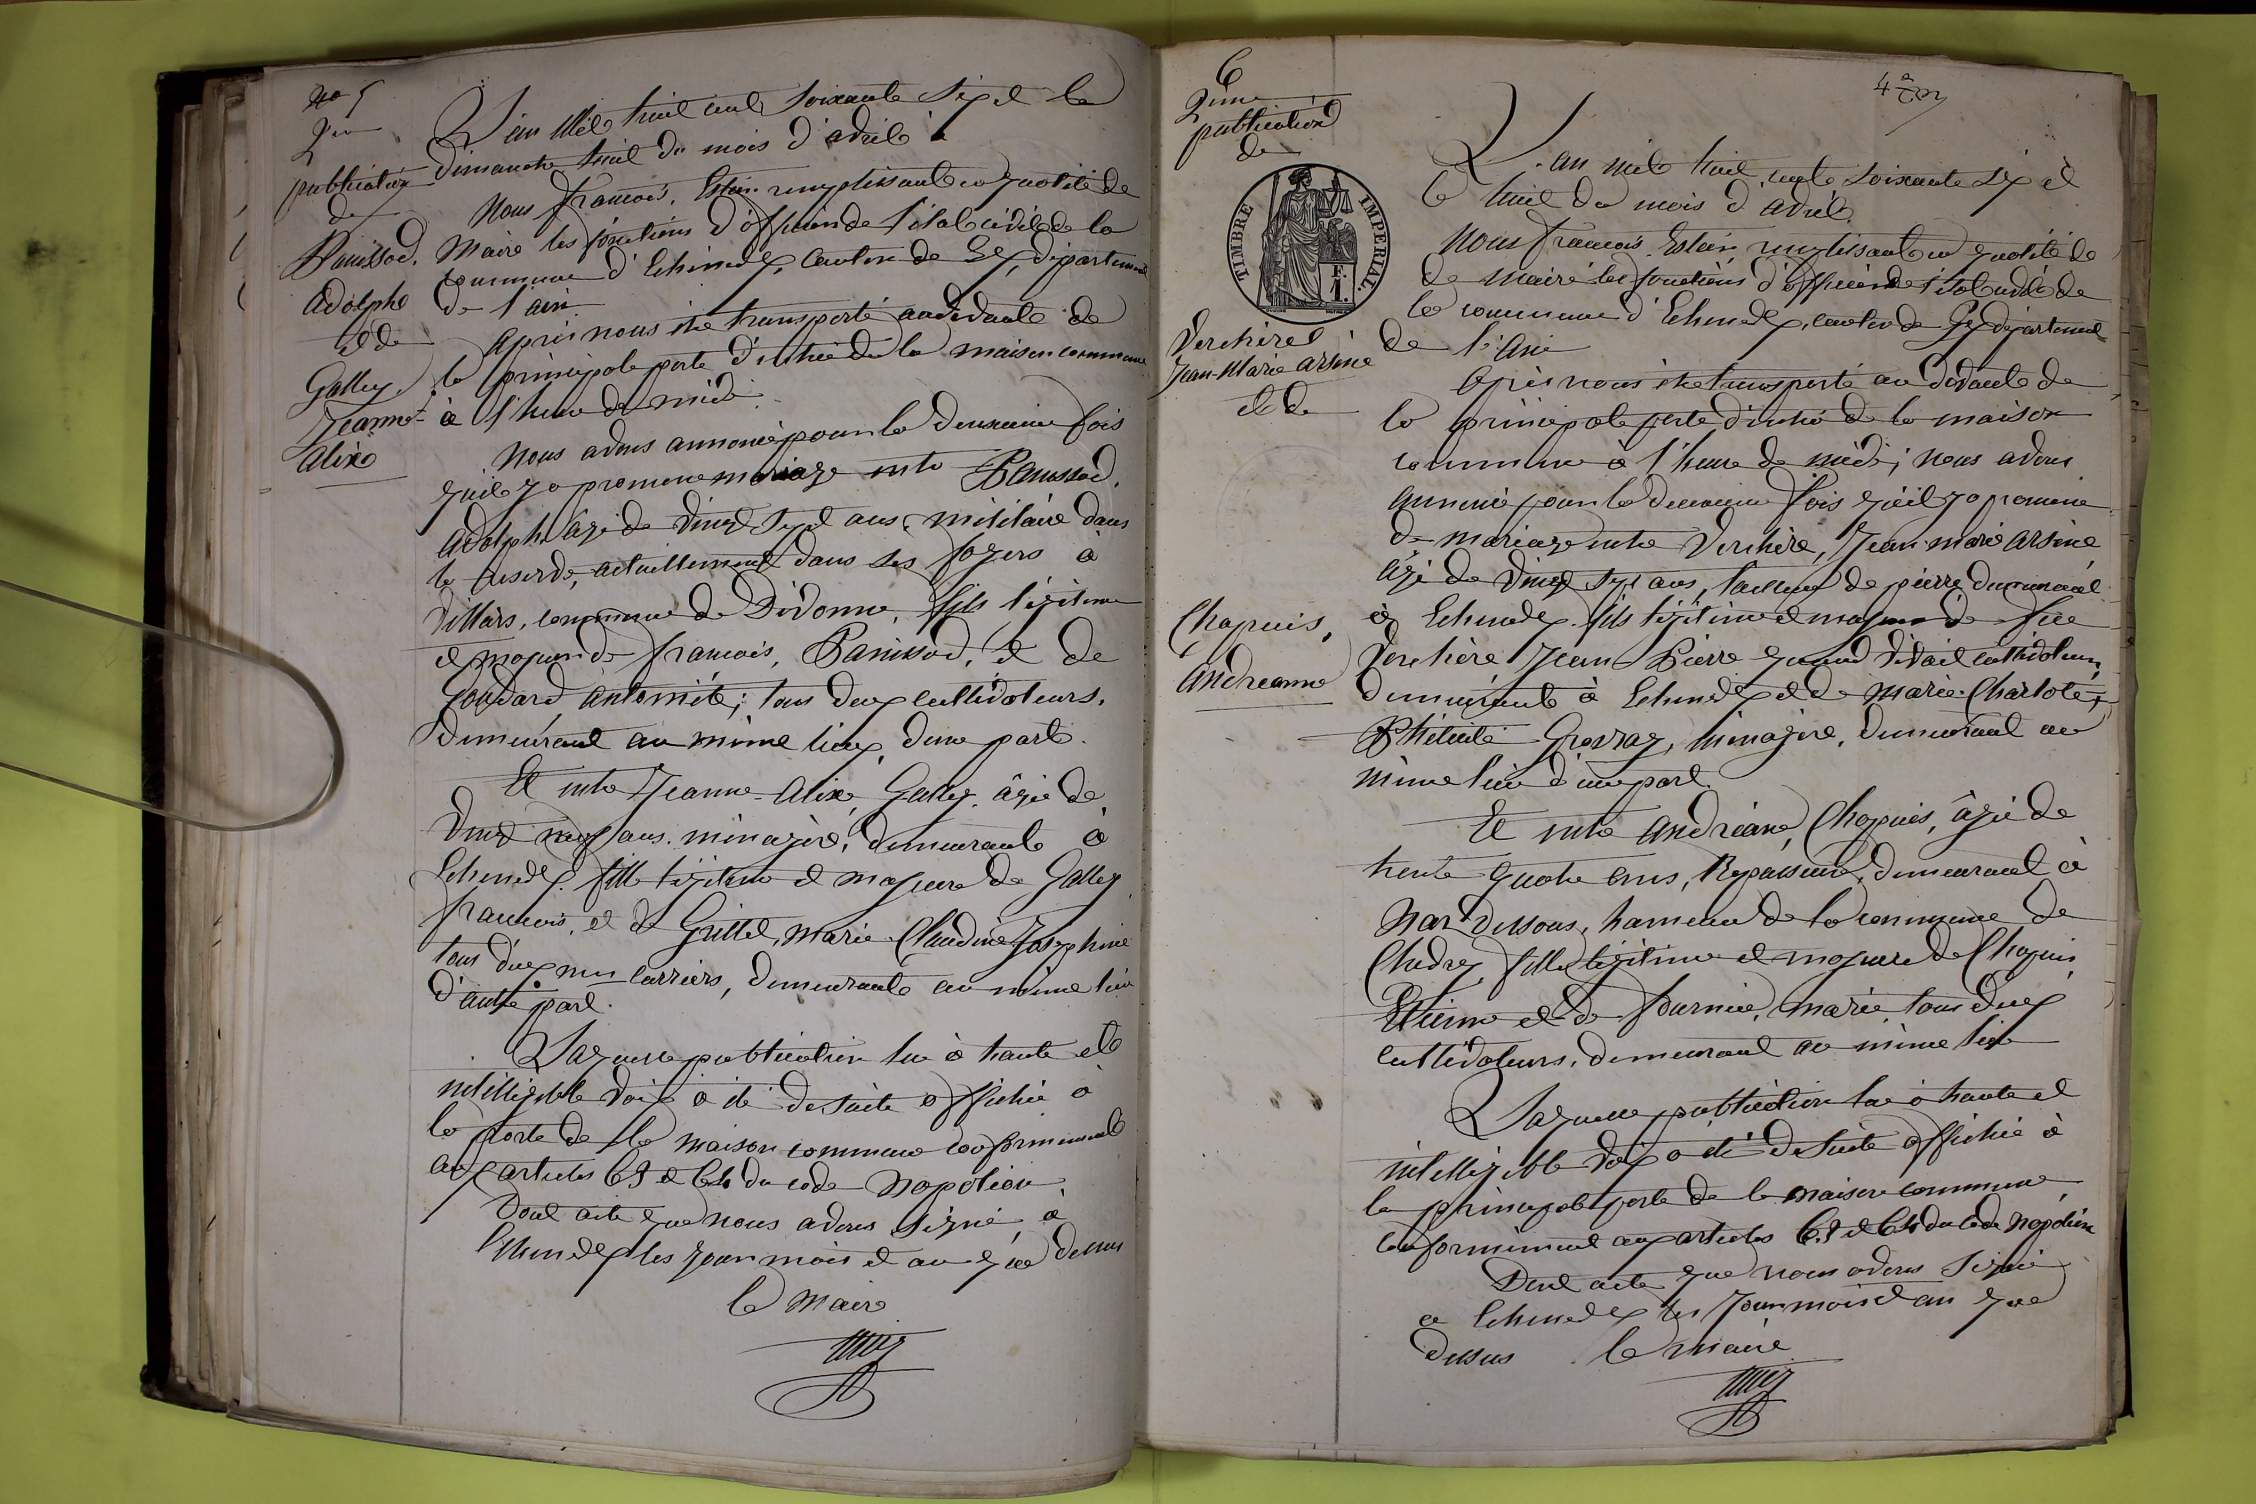 No 5
2me
publication
de
Panissod.
Adolphe
et de
Galley.
Jeanne
Alixe
L'an Mil huit cent soixante six et le
dimanche huit du mois d'avril à
Nous françois, Estier remplissant en qualité de
Maire les fonctions d'officier de l'état civil de la
commune d'Echenevex, Canton de Gex, département
de l'ain.
Après nous être transporté audevant de
la principale porte d'entrée de la maison commune
à l'heure de midi.
Nous avons annoncé pour la deuxième fois
qu'il y a promesse mariage entre Panissod.
Adolphe âgé de vingt sept ans, militaire dans
la réserve, actuellement dans ses foyers à
Villars, commune de Divonne, fils légitime
et majeur de françois, Panissod, et de
Goudard antoniéte; tous deux cultivateurs.
demeurant au même lieu, d'une part.
Et entre Jeanne-Alixe, Galley, âgée de
vingt neuf ans, ménagère, demeurant à
Echenevex. fille légitime et majeure de Galley
francois, et de Grillet, marie-Claudine Josephine
tous deux carriers, demeurants au même lieu
d'autre part.
Laquelle publication lue à haute et
intelligible voix a été de suite affichée à
la porte de la maison commune conformement
aux articles 63 et 64 du code Napoléon
Dont acte que nous avons signé, à
Echenevex les jour mois et an que dessus
le Maire
6
2eme
publication
de
TIMBRE IMPERIAL.
F.
1.
Verchère
Jean-Marie arsène
et de
Chapuis,
Andréanne
4e
L'an mil huit cent soixante six et
le huit du mois d'avril.
Nous françois, Estier, remplissant en qualité de
de maire les fonctions d'officier de l'état civil de
la commune d'Echenevex, canton de Gex département
de l'Ain
Après nous être transporté au devant de
la principale porte d'entrée de la maison
commune à l'heure de midi; nous avons
annoncé pour la deuxième fois qu'il y a promesse
de mariage entre Verchère, Jean-marie arsène
âgé de vingt sept ans, tailleur de pierre demeurant
à Echenevex. fils légitime et majeur de feu
Verchère Jean-Pierre quand vivait cultivateur,
demeurant à Echenevex et de Marie-Charlote,
Phélicité Grossaz, ménagère, demeurant au
même lieu d'une part.
Et entre Andréane, Chapuis, âgée de
trente quatre ans, Repasseuse, demeurant à
Naz-Dessous, hameau de la commune de
Chevry, fille légitime et majeure de Chapuis,
Etienne et de fournier, marie, tous deux
cultivateurs, demeurant au même lieu
Laquelle publication lue à haute et
intelligible voix a été de suite affichée à
la principale porte de la maison commune,
conformément aux articles 63 et 64 du code Napoléon
Dont acte que nous avons signé
a Echenevex les jour mois et an que
dessus le maire